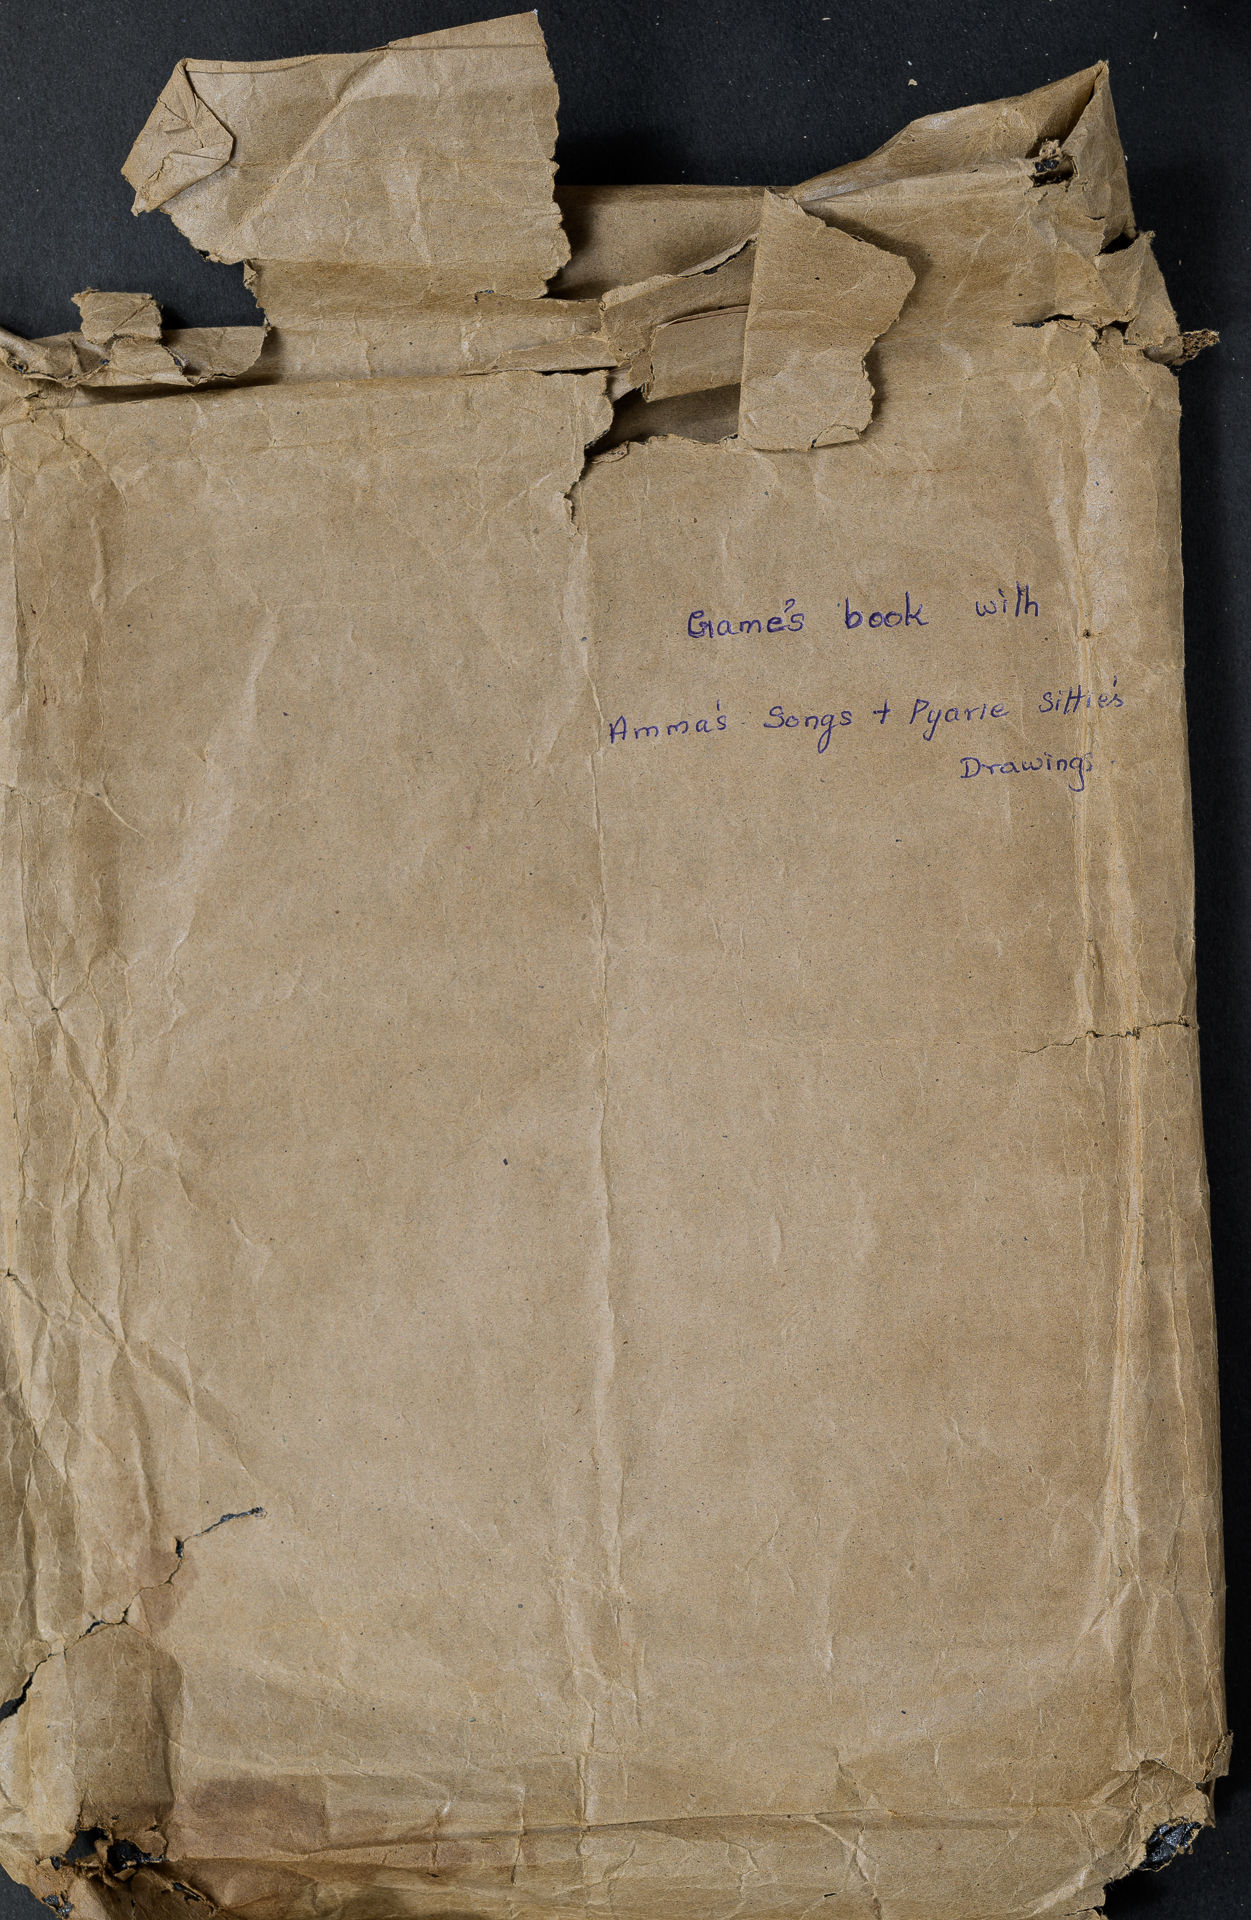 Game's book with
Amma's Songs + Pyarie Sittie's
Drawings.